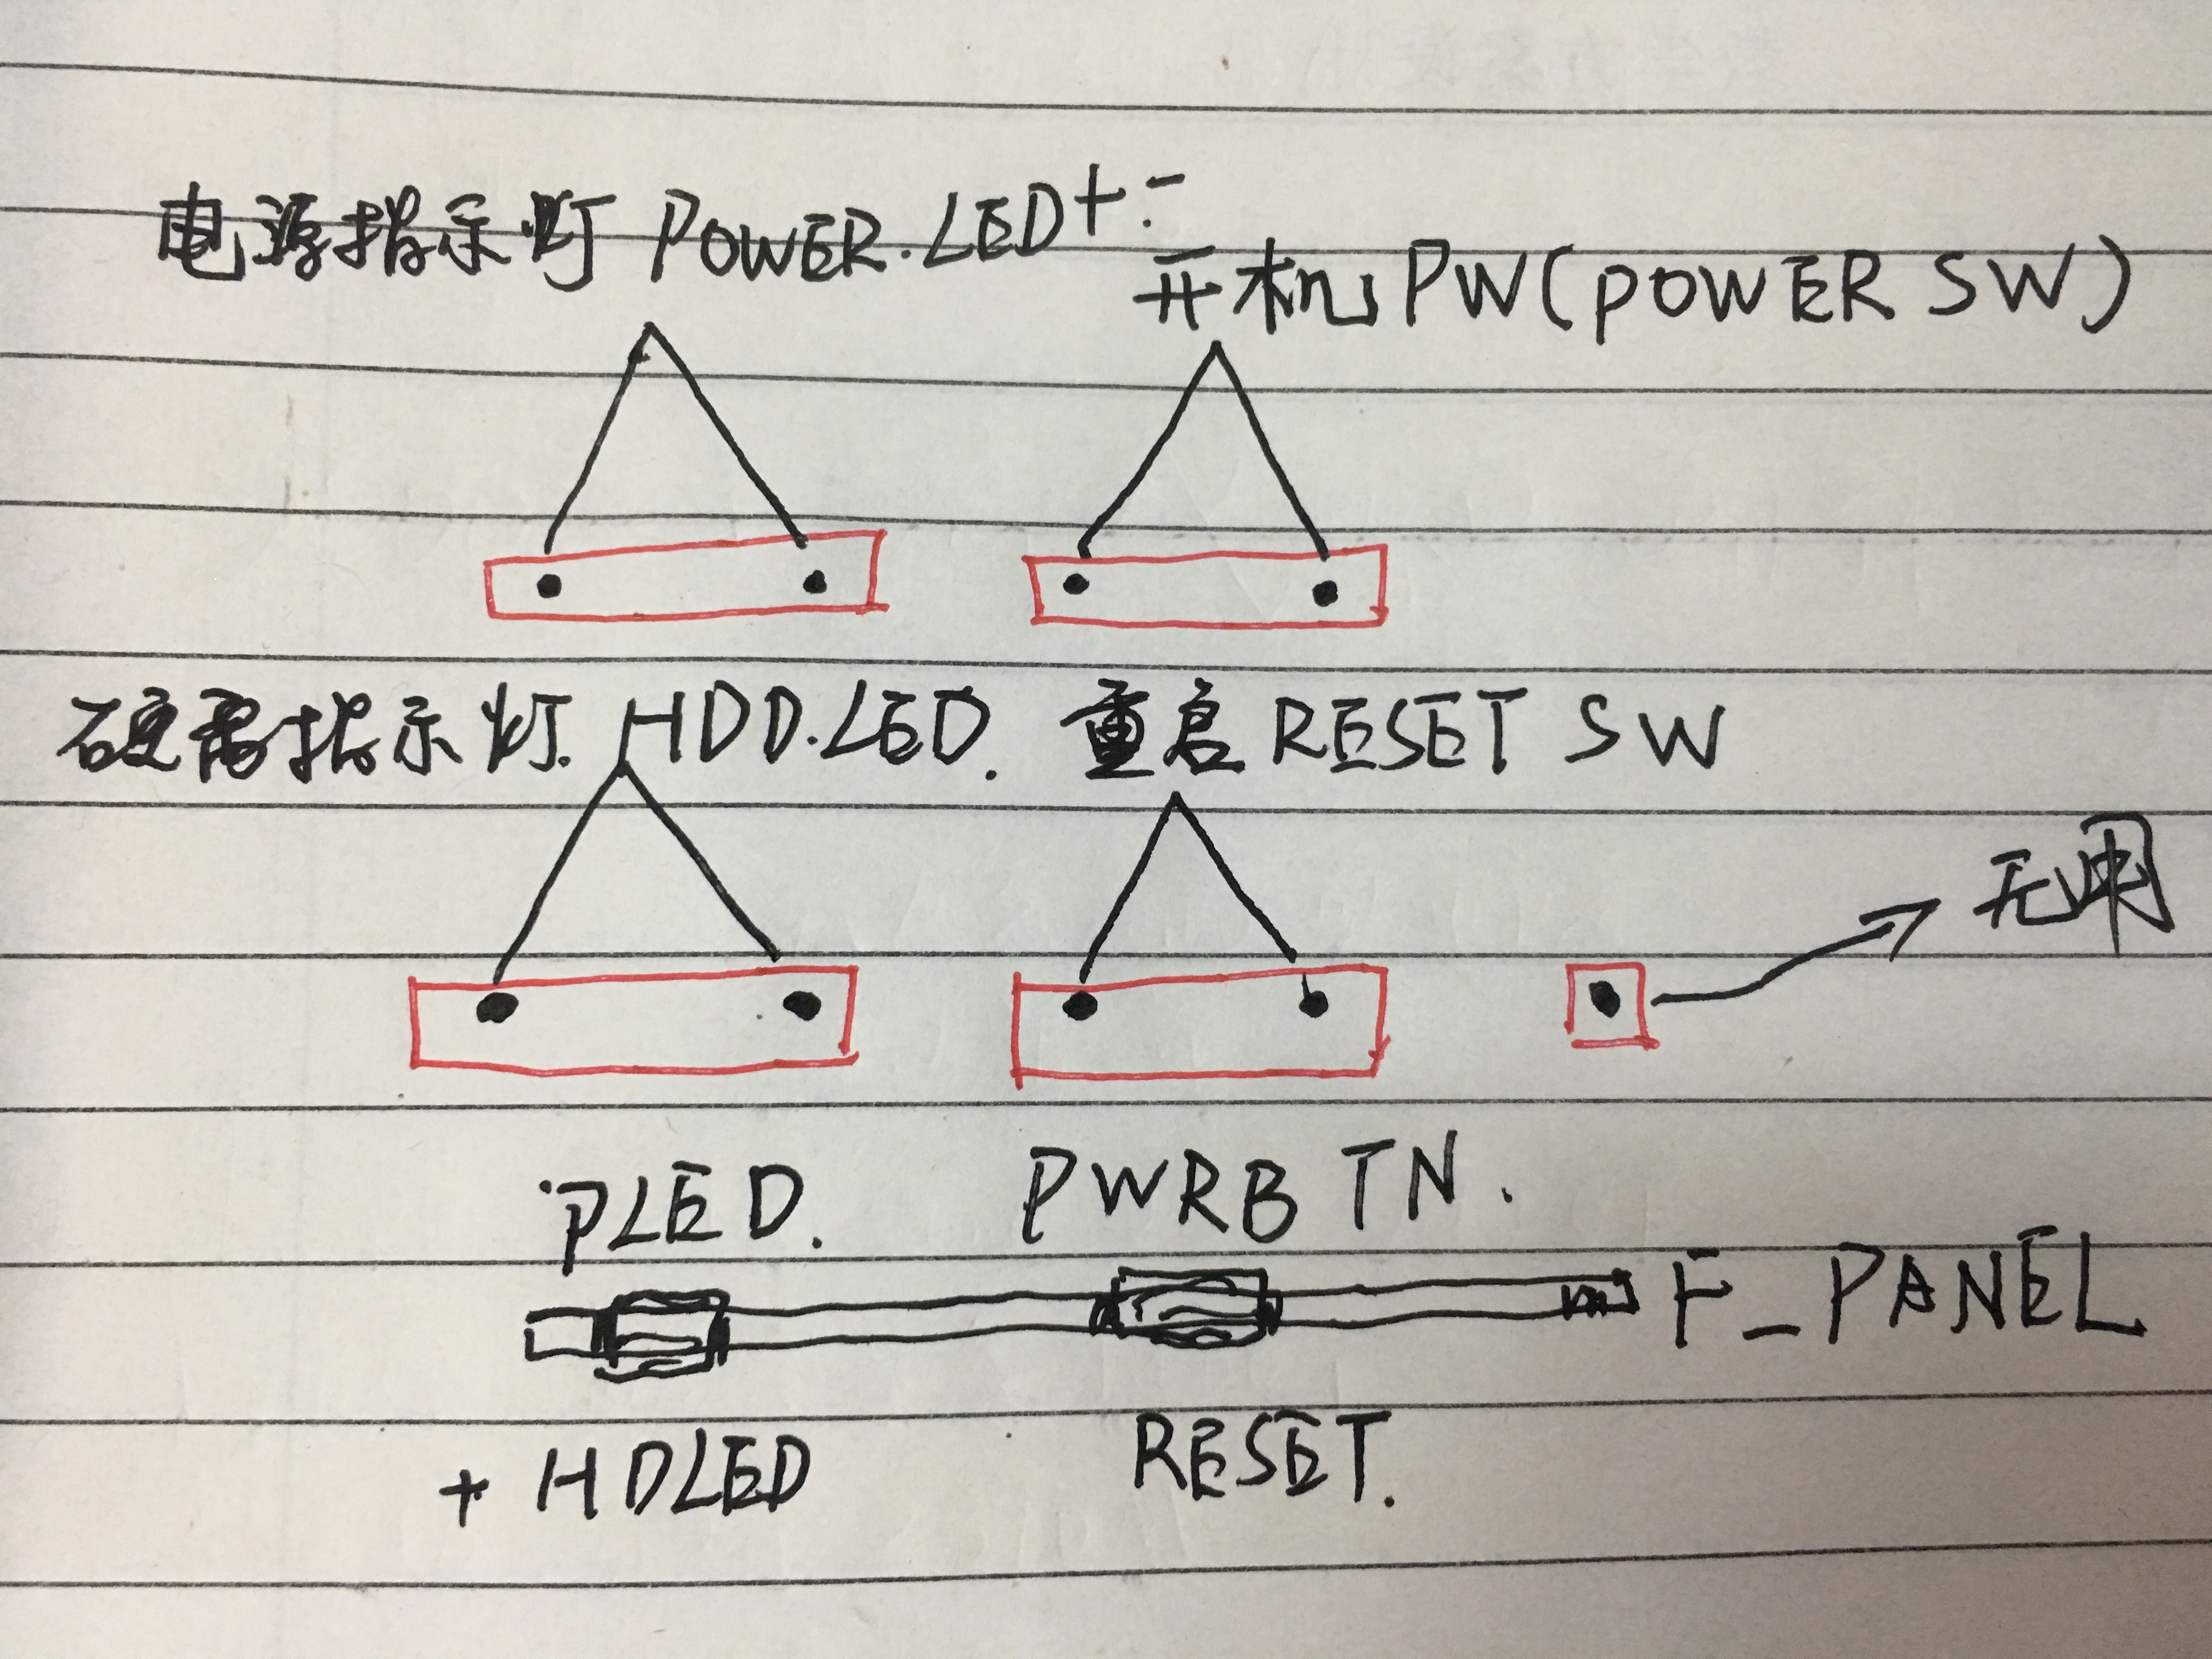 电源指示灯 POWER.LED+ -
开机 PW(POWER SW)
硬盘指示灯. HDD.LED. 重启 RESET SW
无用
PLED. PWRBTN.
F_PANEL
+ HDLED RESET.